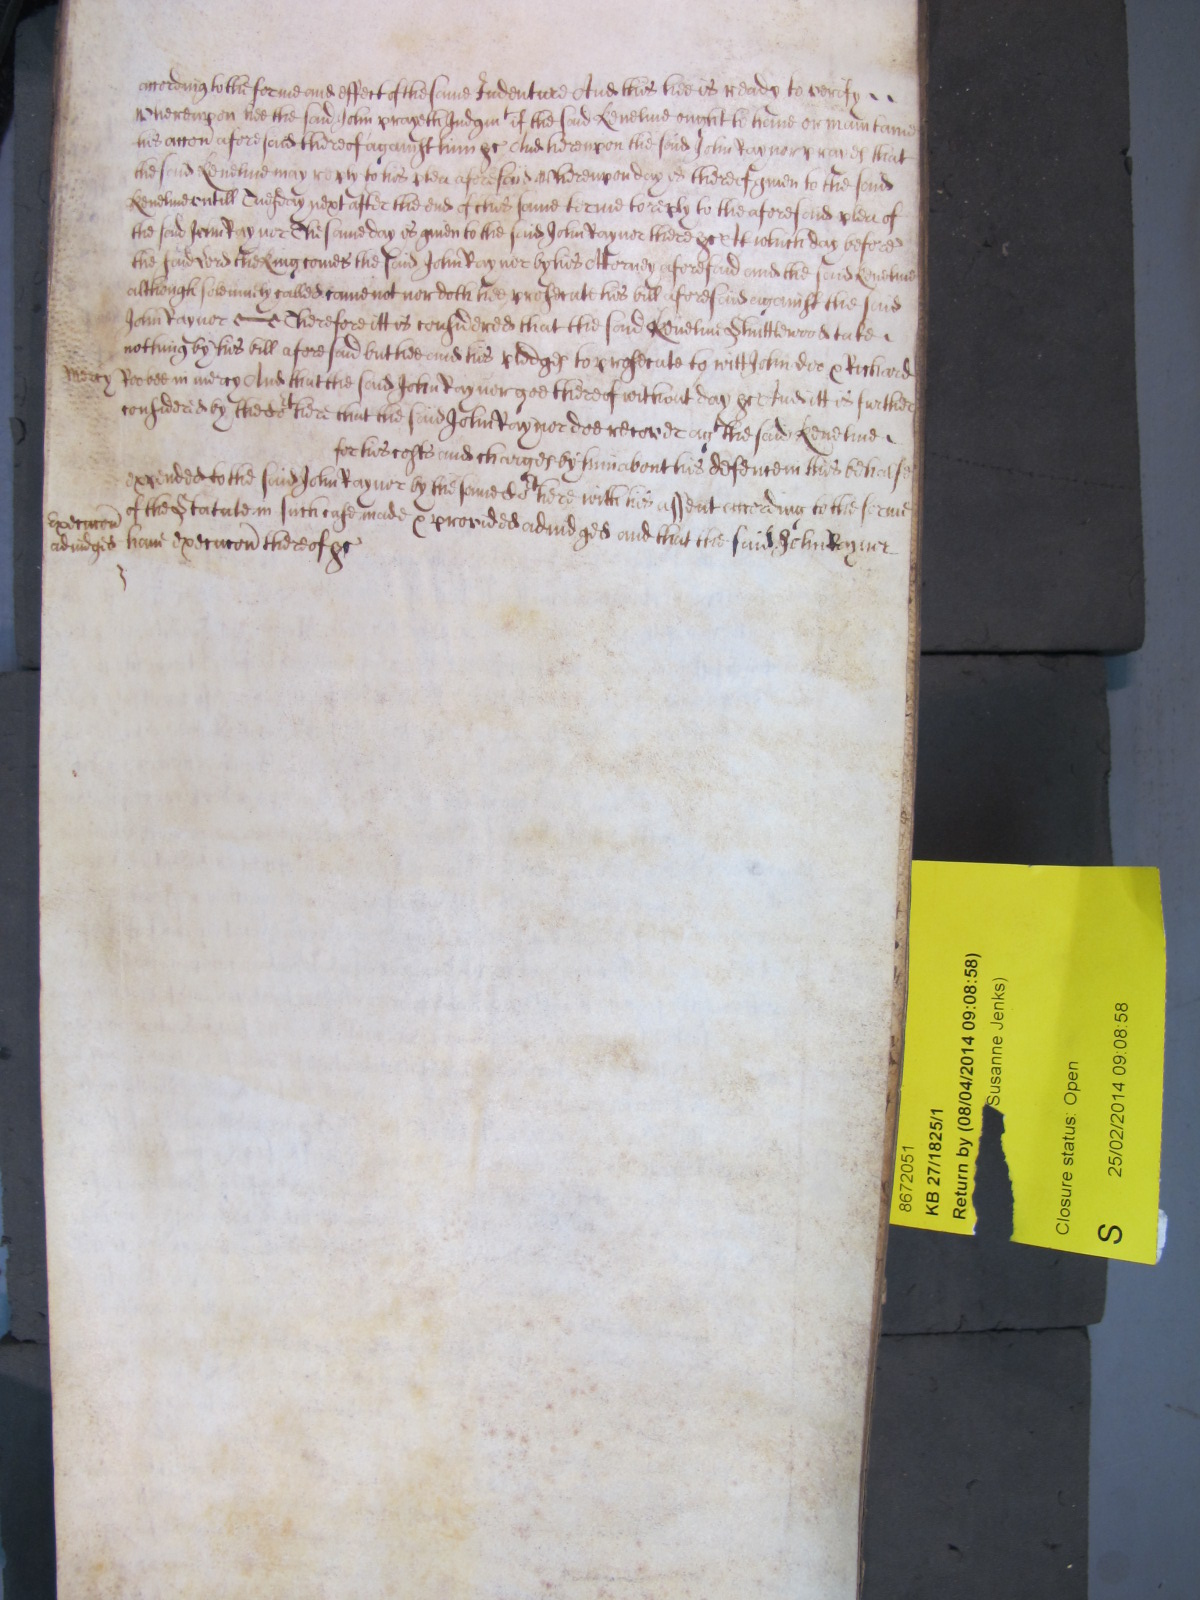 according to the forme and effect of the same Indenture And this hee is ready to verify
Whereupon hee the said John prayeth Judgmt if the said Keneline ought to haue or maintaine
his accon aforesaid thereof against him &c And hereupon the said John Raynor prayes that
the said Keneline may reply to his plea aforesaid Whereupon day is thereof giuen to the said
Keneline untill Tuesday next after the end of this same terme to reply to the aforesaid plea of
the said John Raynor The same day is giuen to the said John Raynor there &c Att which day before
the said Lord the King comes the said John Raynor by his Attorney aforesaid and the said Keneline
although solemnly called came not nor doth hee prosecute his bill aforesaid against the said
John Raynor Therefore itt is considered that the said Keneline Shuttlewood take
nothing by his bill aforesaid but hee and his pledges to prosecute to witt John doe & Richard
Mercy Roe bee in mercy And that the said John Raynor goe thereof without day &c And itt is further
considered by the Cort here that the said John Raynor doe recover agt the said Keneline
for his costs and charges by him about his defence in this behalfe
expended to the said John Raynor by the same Cort here with his assent according to the forme
of the Statute in such case made & provided adiudged and that the said John Raynor
Execucon
adiudged haue execucon thereof &c
8672051
KB 27/1825/1
Return by (08/04/2014 09:08:58)
Susanne Jenks)
Closure status: Open
S
25/02/2014 09:08:58